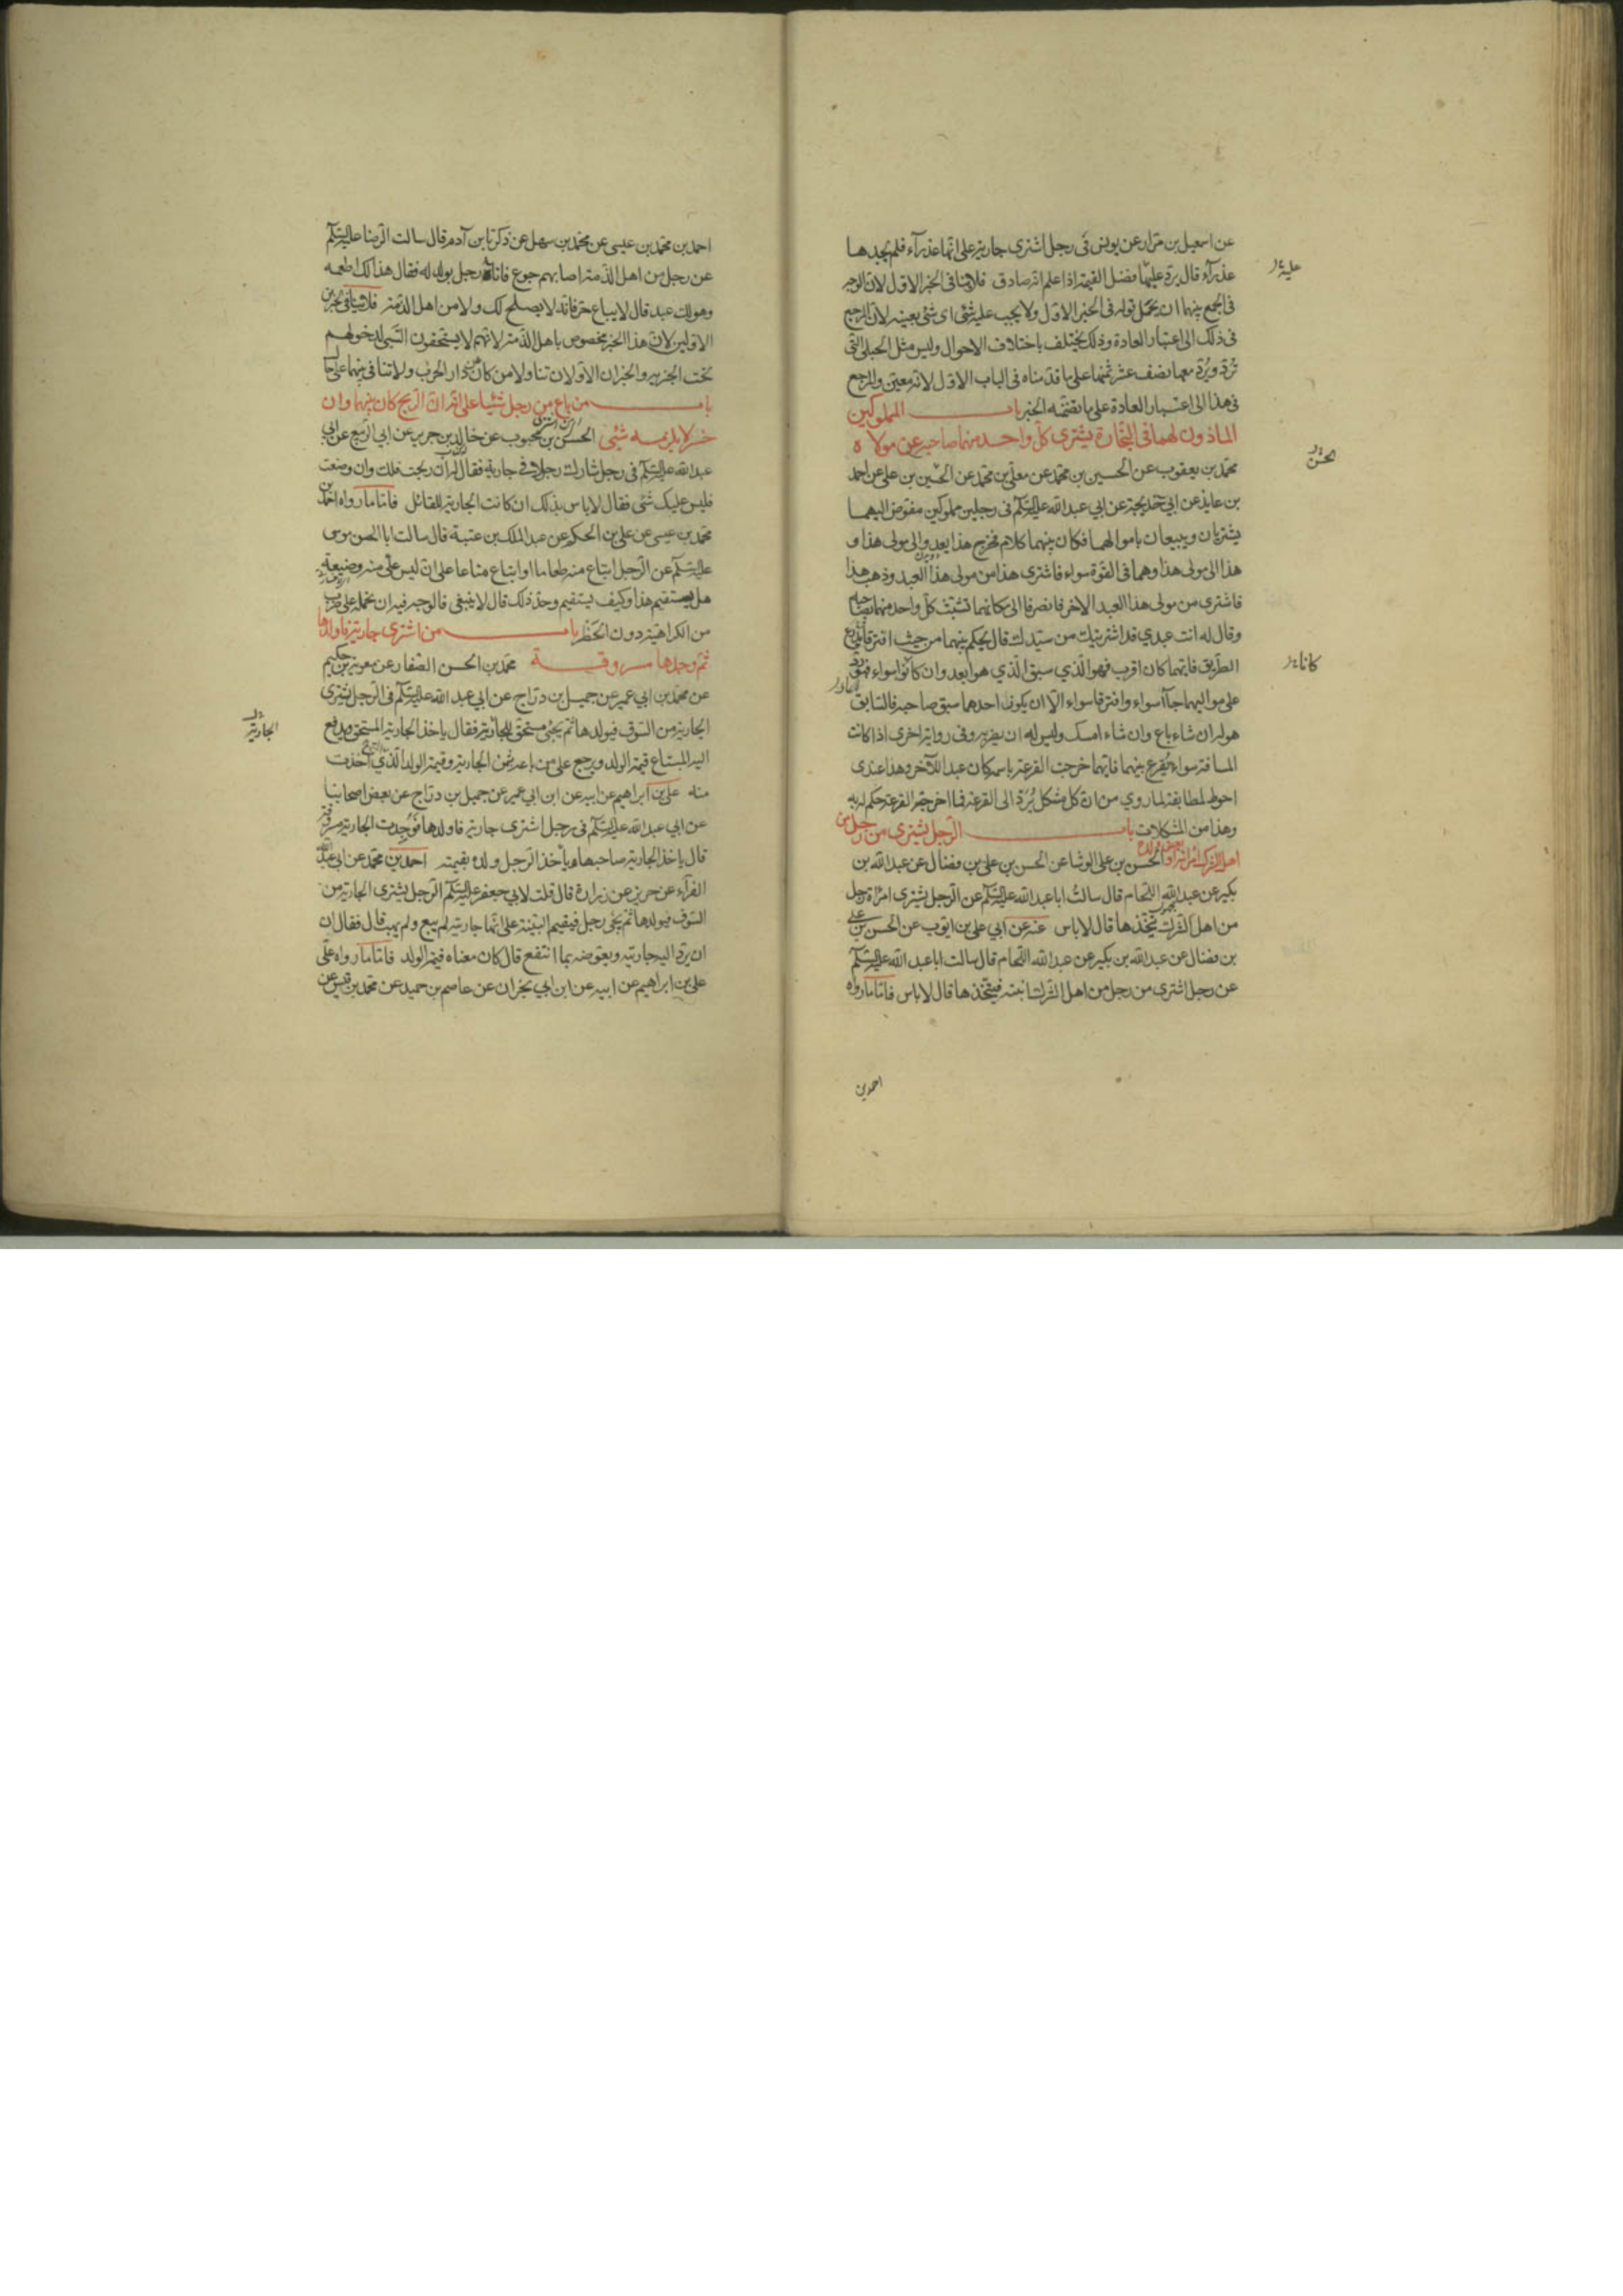 عن اسمعيل بن مرار عن يونس فى رجل اشترى جارية على انها عذراء فلم يجدها
عذرآء قال يردّ عليه فضل القيمة اذا علم انه صادق فلا ينافى الخبر الاول لان الوجه
فى الجمع بينهما ان نحمل قوله فى الخبر الاول ولا يجب عليه شئ اى شئ بعينه لان المرجع
فى ذلك الى اعتبار العادة وذلك يختلف باختلاف الاحوال وليس مثل الحبلى التى
تردّ ويردّ معها نصف عشر ثمنها على ما قدمناه فى الباب الاول لانه معين والمرجع
فى هذا الى اعتبار العادة على ما تضمنه الخبر باب المملوكين
الماذون لهما فى التجارة يشترى كل واحد منهما صاحبه من مولاه
محمد بن يعقوب عن الحسين بن محمد عن معلى بن محمد عن الحسين بن على عن احمد
بن عايذ عن ابي خديجة عن ابي عبد الله عليه السلم فى رجلين مملوكين مفوض اليهما
يشتريان ويبيعان باموالهما فكان بينهما كلام فخرج هذا يعدو الى مولى هذا و
هذا الى مولى هذا وهما فى القوة سواء فاشترى هذا من مولى هذا العبد وذهب هذا
فاشترى من مولى هذا العبد الاخر فانصرفا الى مكانهما تشبث كل واحد منهما بصاحبه
وقال له انت عبدي قد اشتريتك من سيدك قال يحكم بينهما من حيث افترقا يذرع
الطريق فايهما كان اقرب فهو الذي سبق الذي هو ابعد وان كانوا سواء فهو رد
على مواليهما جاآ سواء وافترقا سواء الا ان يكون احدهما سبق صاحبه فالسابق
هو له ان شاء باع وان شاء امسك وليس له ان يضر به وفى رواية اخرى اذا كانت
المسافة سواء يقرع بينهما فايهما خرجت القرعة باسمه كان عبدا للآخر وهذا عندى
احوط لمطابقته لما روي من ان كل مشكل يُردّ الى القرعة فما اخرجته القرعة حكم له به
وهذا من المشكلات باب الرجل يشترى من رجل من
اهل الشرك امراته او بعض ولده الحسن بن على الوشا عن الحسن بن على بن فضال عن عبد الله بن
بكير عن عبد الله اللحام قال سالتُ ابا عبد الله عليه السلم عن الرجل يشترى امراة رجل
من اهل الشرك يتخذها قال لا باس عنه عن ابي على بن ايوب عن الحسن بن على
بن فضال عن عبد الله بن بكير عن عبد الله اللحام قال سالت ابا عبد الله عليه السلم
عن رجل اشترى من رجل من اهل الشرك ابنته فيتخذها قال لا باس فاما ما رواه
احمد بن
عليه
الحسن
كانا
احمد بن محمد بن عيسى عن محمد بن سهل عن زكريا بن آدم قال سالت الرضا عليه السلم
عن رجل من اهل الذمة اصابهم جوع فاتاه رجل بولد له فقال هذا لك اطعمه
وهو لك عبد قال لا يباع حر فانه لا يصلح لك ولا من اهل الذمة فلا ينافى الخبرين
الاولين لان هذا الخبر مخصوص باهل الذمة لانهم لا يستحقون السبى لدخولهم
تحت الجزية والخبران الاولان تناولا من كان فى دار الحرب ولا تنافى بينهما على حال
باب من باع من رجل شيئا على انه ان الربح كان بينهما وان
خسر لا يلزمه شئ الحسن بن محبوب عن خالد بن جرير عن ابي الربيع عن ابي
عبد الله عليه السلم فى رجل شارك رجلا فى جارية فقال له ان ربحت فلك وان وضعت
فليس عليك شئ فقال لا باس بذلك ان كانت الجارية للقائل فاما ما رواه احمد بن
محمد بن عيسى عن على بن الحكم عن عبد الملك بن عتبة قال سالت ابا الحسن موسى
عليه السلم عن الرجل ابتاع منه طعاما او ابتاع متاعا على ان ليس علىّ منه وضيعة
هل يستقيم هذا وكيف يستقيم وحدّ ذلك قال لا ينبغى فالوجه فيه ان نحمله على ضرب
من الكراهية دون الحَظْر باب من اشترى جارية فاولدها
ثم وجدها مسروقة محمد بن الحسن الصفار عن معوية بن حكيم
عن محمد بن ابي عمير عن جميل بن دراج عن ابي عبد الله عليه السلم فى الرجل يشترى
الجارية من السوق فيولدها ثم يجئ مستحق الجارية فقال ياخذ الجارية المستحق ويدفع
اليه المبتاع قيمة الولد ويرجع على من باعه بثمن الجارية وقيمة الولد الذي اخذت
منه على بن ابراهيم عن ابيه عن ابن ابي عمير عن جميل بن دراج عن بعض اصحابنا
عن ابي عبد الله عليه السلم فى رجل اشترى جارية فاولدها فوُجدت الجارية مسروقة
قال ياخذ الجارية صاحبها ويأخذ الرجل ولده بقيمته احمد بن محمد عن ابى عبد الله
الفرآء عن حريز عن زرارة قال قلت لابي جعفر عليه السلم الرجل يشترى الجارية من
السوق فيولدها ثم يجئ رجل فيقيم البينة على انها جاريته لم يبع ولم يهب قال فقال ان
ان يرد اليه جاريته ويعوضه بما انتفع قال كان معناه قيمة الولد فاما ما رواه على
على بن ابراهيم عن ابيه عن ابن ابي نجران عن عاصم بن حميد عن محمد بن قيس عن
الجارية